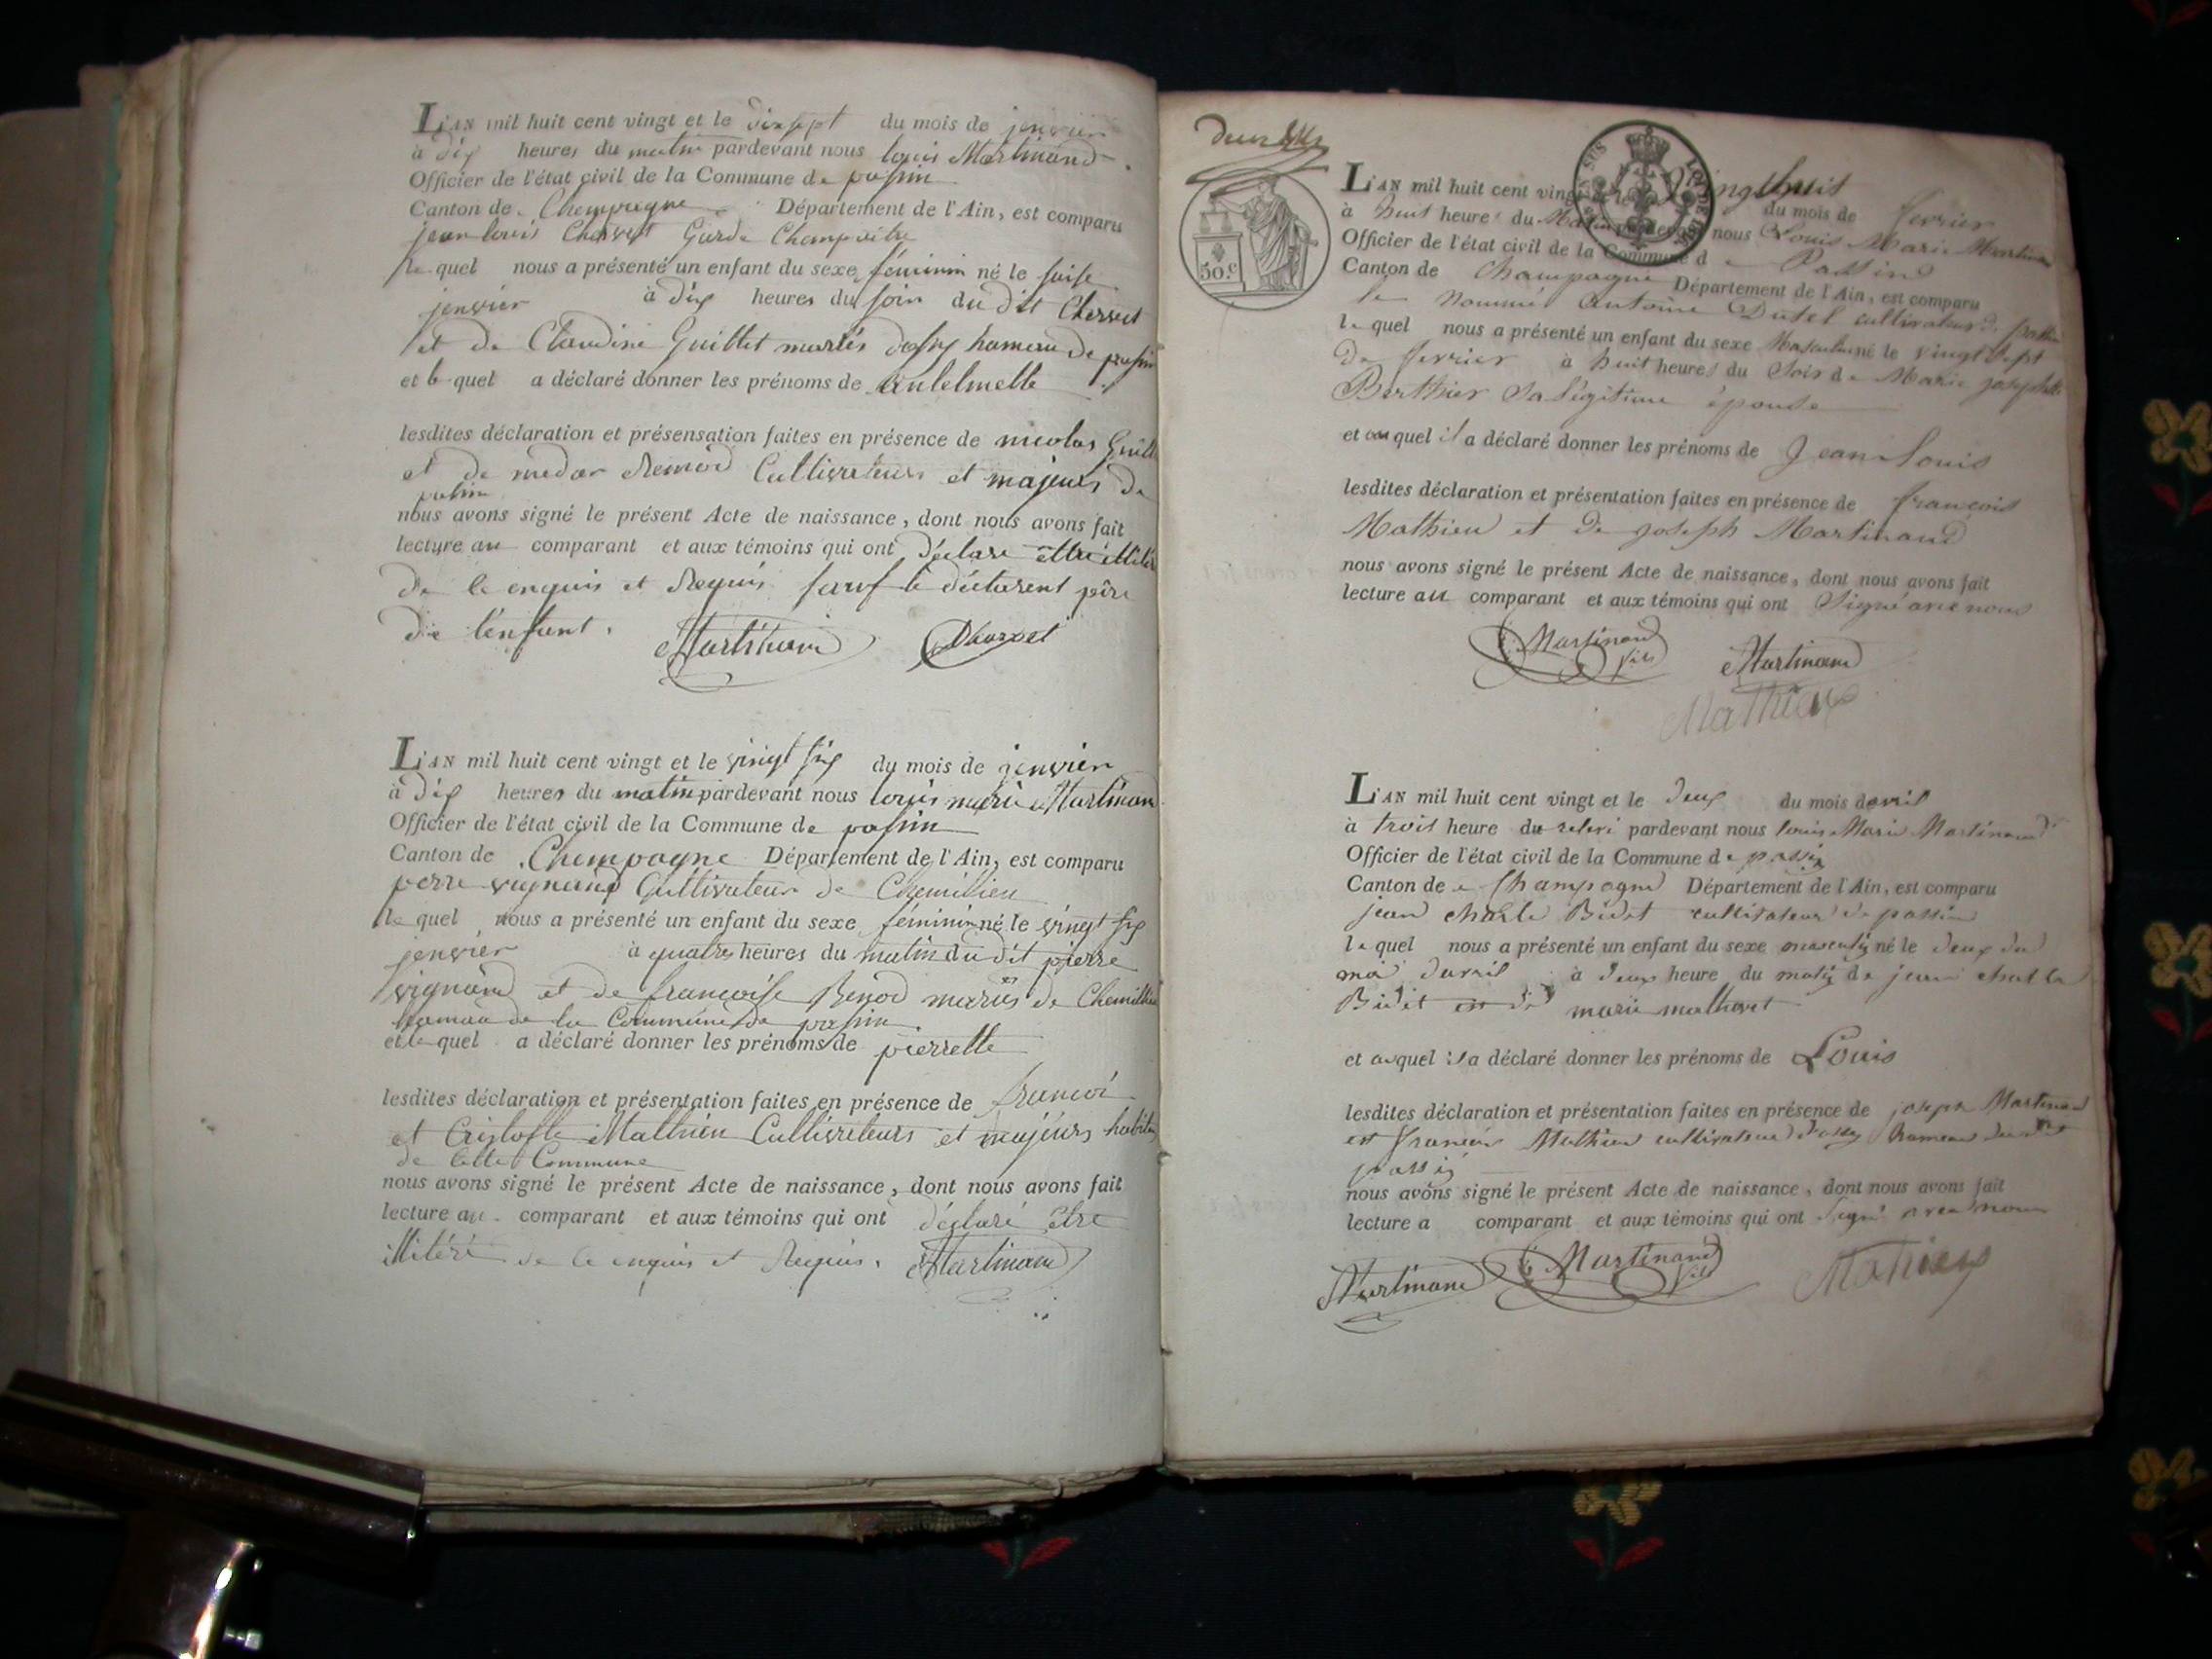 L'AN mil huit cent vingt et le dixsept du mois de jenvier
à dix heures du matin pardevant nous louis Martinand
Officier de l'état civil de la Commune de passin
Canton de Chempagne Département de l'Ain, est comparu
jean louis Charvet Garde Champaitre
le quel nous a présenté un enfant du sexe féminin né le saise
jenvier à dix heures du soir du dit Chervet
et de Claudine Guillet mariés hameau de passin
et le quel a déclaré donner les prénoms de Antelmette
lesdites déclaration et présensation faites en présence de nicolas
et de medar Cultivateurs et majeurs de
passin
nous avons signé le présent Acte de naissance, dont nous avons fait
lecture au comparant et aux témoins qui ont déclare
de ce enquis et Requis sauf le déclarent père
de l'enfant. Martinand Charvet
L'AN mil huit cent vingt et le vingt six du mois de jenvier
à dix heures du matin pardevant nous louis marie Martinand
Officier de l'état civil de la Commune de passin
Canton de Chempagne Département de l'Ain, est comparu
perre vignand Cultivateur de Chemillieu
le quel nous a présenté un enfant du sexe féminin né le vingt six
jenvier à quatre heures du matin du dit pierre
vignand et de francoise Benod mariés de Chemillieu
hamau de la Commune de passin
et le quel a déclaré donner les prénoms de pierrette
lesdites déclaration et présentation faites en présence de francoi
et Cristofle Mathieu Cultivateurs et majeurs
de cette Commune
nous avons signé le présent Acte de naissance, dont nous avons fait
lecture au comparant et aux témoins qui ont déclaré être
illitéré de ce enquis et Requis. Martinand
50 c
L'AN mil huit cent vingt et le vingthuit du mois de fevrier
à huit heures du Matin pardevant nous Louis Marie Martinand
Officier de l'état civil de la Commune de Passin
Canton de Champagne Département de l'Ain, est comparu
le nommé antoine Dutel cultivateur de passin
le quel nous a présenté un enfant du sexe Masculin né le vingt sept
de fevrier à huit heures du Soir de Marie josephte
Berthier Sa légitime épouse
et auquel il a déclaré donner les prénoms de Jean Louis
lesdites déclaration et présentation faites en présence de françois
Mathieu et de joseph Martinand
nous avons signé le présent Acte de naissance, dont nous avons fait
lecture au comparant et aux témoins qui ont Signé avec nous
Martinand fils Martinand
Mathieu
L'AN mil huit cent vingt et le deux du mois davril
à trois heure du pardevant nous louis Marie Martinand
Officier de l'état civil de la Commune de passin
Canton de Champagne Département de l'Ain, est comparu
jean charle Bidet cultivateur de passin
le quel nous a présenté un enfant du sexe masculin né le deux du
moi davril à deux heure du matin de jean charle
Bidet et de marie
et auquel il a déclaré donner les prénoms de Louis
lesdites déclaration et présentation faites en présence de joseph Martinand
et francois Mathieu cultivateur hameau
passin
nous avons signé le présent Acte de naissance, dont nous avons fait
lecture a comparant et aux témoins qui ont signé avec nous
Martinand Martinand fils Mathieu